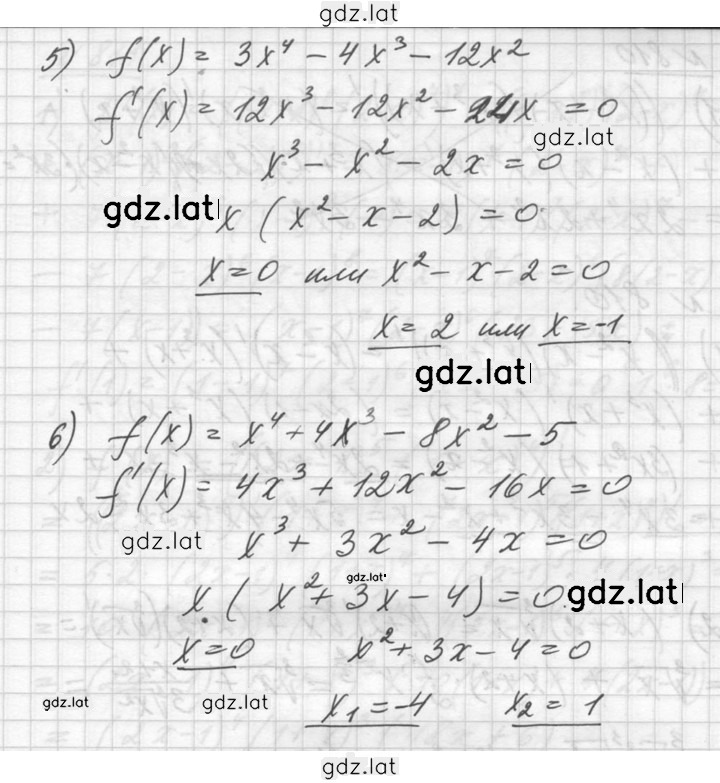 gdz.lat
5) f(x) = 3x⁴ - 4x³ - 12x²
f'(x) = 12x³ - 12x² - 24x = 0
gdz.lat
x³ - x² - 2x = 0
gdz.lat x (x² - x - 2) = 0
x = 0 или x² - x - 2 = 0
x = 2 или x = -1
gdz.lat
6) f(x) = x⁴ + 4x³ - 8x² - 5
f'(x) = 4x³ + 12x² - 16x = 0
gdz.lat x³ + 3x² - 4x = 0
gdz.lat
x (x² + 3x - 4) = 0 gdz.lat
x = 0 x² + 3x - 4 = 0
gdz.lat gdz.lat x₁ = -4 x₂ = 1
gdz.lat